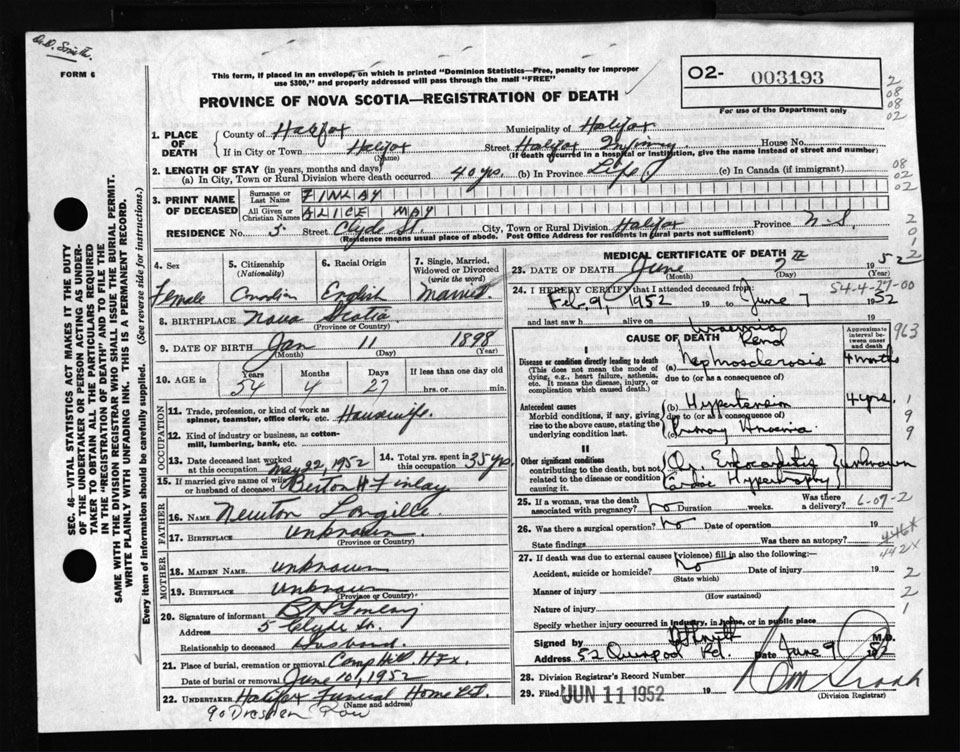 D.D. Smith.
FORM 6
This form, if placed in an envelope, on which is printed "Dominion Statistics—Free, penalty for improper
use $300," and properly addressed will pass through the mail "FREE"
PROVINCE OF NOVA SCOTIA—REGISTRATION OF DEATH
O2- 003193
For use of the Department only
2
08
08
02
1. PLACE OF DEATH
County of Halifax Municipality of Halifax
If in City or Town Halifax Street Halifax Infirmary House No.
(Name) (If death occurred in a hospital or institution, give the name instead of street and number)
2. LENGTH OF STAY (in years, months and days)
(a) In City, Town or Rural Division where death occurred 40 yrs. (b) In Province Life (c) In Canada (if immigrant)
08
02
02
3. PRINT NAME OF DECEASED
Surname or Last Name FINLAY
All Given or Christian Names ALICE MAY
RESIDENCE No. 5 Street Clyde St. City, Town or Rural Division Halifax Province N.S.
(Residence means usual place of abode. Post Office Address for residents in rural parts not sufficient)
2
0
1
2
2
4. Sex Female
5. Citizenship (Nationality) Canadian
6. Racial Origin English
7. Single, Married, Widowed or Divorced (write the word) Married
8. BIRTHPLACE Nova Scotia
(Province or Country)
9. DATE OF BIRTH Jan 11 1898
(Month) (Day) (Year)
10. AGE in Years 54 Months 4 Days 27 If less than one day old
hrs. or min.
OCCUPATION
11. Trade, profession, or kind of work as
spinner, teamster, office clerk, etc. Housewife.
12. Kind of industry or business, as cotton-
mill, lumbering, bank, etc.
13. Date deceased last worked
at this occupation May 22, 1952
14. Total yrs. spent in
this occupation 35 yrs.
15. If married give name of wife
or husband of deceased Berton H Finlay
FATHER
16. NAME Newton
17. BIRTHPLACE Unknown
(Province or Country)
MOTHER
18. MAIDEN NAME unknown
19. BIRTHPLACE Unknown
(Province or Country)
20. Signature of informant B H Finlay
Address 5 Clyde St.
Relationship to deceased Husband
21. Place of burial, cremation or removal Camp Hill Hfx.
Date of burial or removal June 10, 1952
22. UNDERTAKER Halifax Funeral Home Ltd.
(Name and address)
90 Dresden Row
MEDICAL CERTIFICATE OF DEATH
23. DATE OF DEATH June 7 1952
(Month) (Day) (Year)
54-4-27-00
24. I HEREBY CERTIFY that I attended deceased from:
Feb. 9, 1952 19 to June 7 1952
and last saw h alive on 19
CAUSE OF DEATH
Approximate interval between onset and death
963
I
Uraemia
Renal
Disease or condition directly leading to death (a) Nephrosclerosis 4 months
(This does not mean the mode of dying, e.g., heart failure, asthenia, etc. It means the disease, injury, or complication which caused death.)
due to (or as a consequence of)
Antecedent causes (b) Hypertension 4 yrs.
Morbid conditions, if any, giving rise to the above cause, stating the underlying condition last.
due to (or as a consequence of)
(c) Primary Anaemia
1
9
9
II
Other significant conditions
contributing to the death, but not related to the disease or condition causing it.
Endocarditis
Cardiac Hypertrophy
unknown
25. If a woman, was the death
associated with pregnancy? No Duration weeks. Was there a delivery?
6-09-2
26. Was there a surgical operation? No Date of operation 19
State findings Was there an autopsy?
446X
442X
27. If death was due to external causes (violence) fill in also the following:—
Accident, suicide or homicide? No Date of injury 19
(State which)
Manner of injury
(How sustained)
Nature of injury
Specify whether injury occurred in industry, in home, or in public place
2
2
1
Signed by D D Smith M.D.
Address 52 Quinpool Rd. Date June 9 1952
28. Division Registrar's Record Number
29. Filed JUN 11 1952 19
(Division Registrar)
SEC. 46—VITAL STATISTICS ACT MAKES IT THE DUTY
OF THE UNDERTAKER OR PERSON ACTING AS UNDER-
TAKER TO OBTAIN ALL THE PARTICULARS REQUIRED
IN THE "REGISTRATION OF DEATH" AND TO FILE THE
SAME WITH THE DIVISION REGISTRAR WHO SHALL ISSUE THE BURIAL PERMIT.
WRITE PLAINLY WITH UNFADING INK. THIS IS A PERMANENT RECORD.
Every item of information should be carefully supplied. (See reverse side for instructions.)